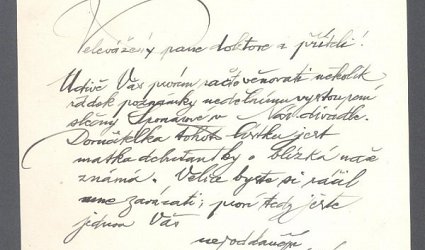 Velevážený pane doktore a příteli!
Uctivě Vás prosím račte věnovati několik
řádek poznámky nedělnímu vystoupení
slečny v Nár. divadle.
Donašitelka tohoto lístku jest
matka debutantky a blízká naše
známá. Velice byste si ráčil
mne zavázati; prosí tedy ještě
jednou Vás
nejoddanější